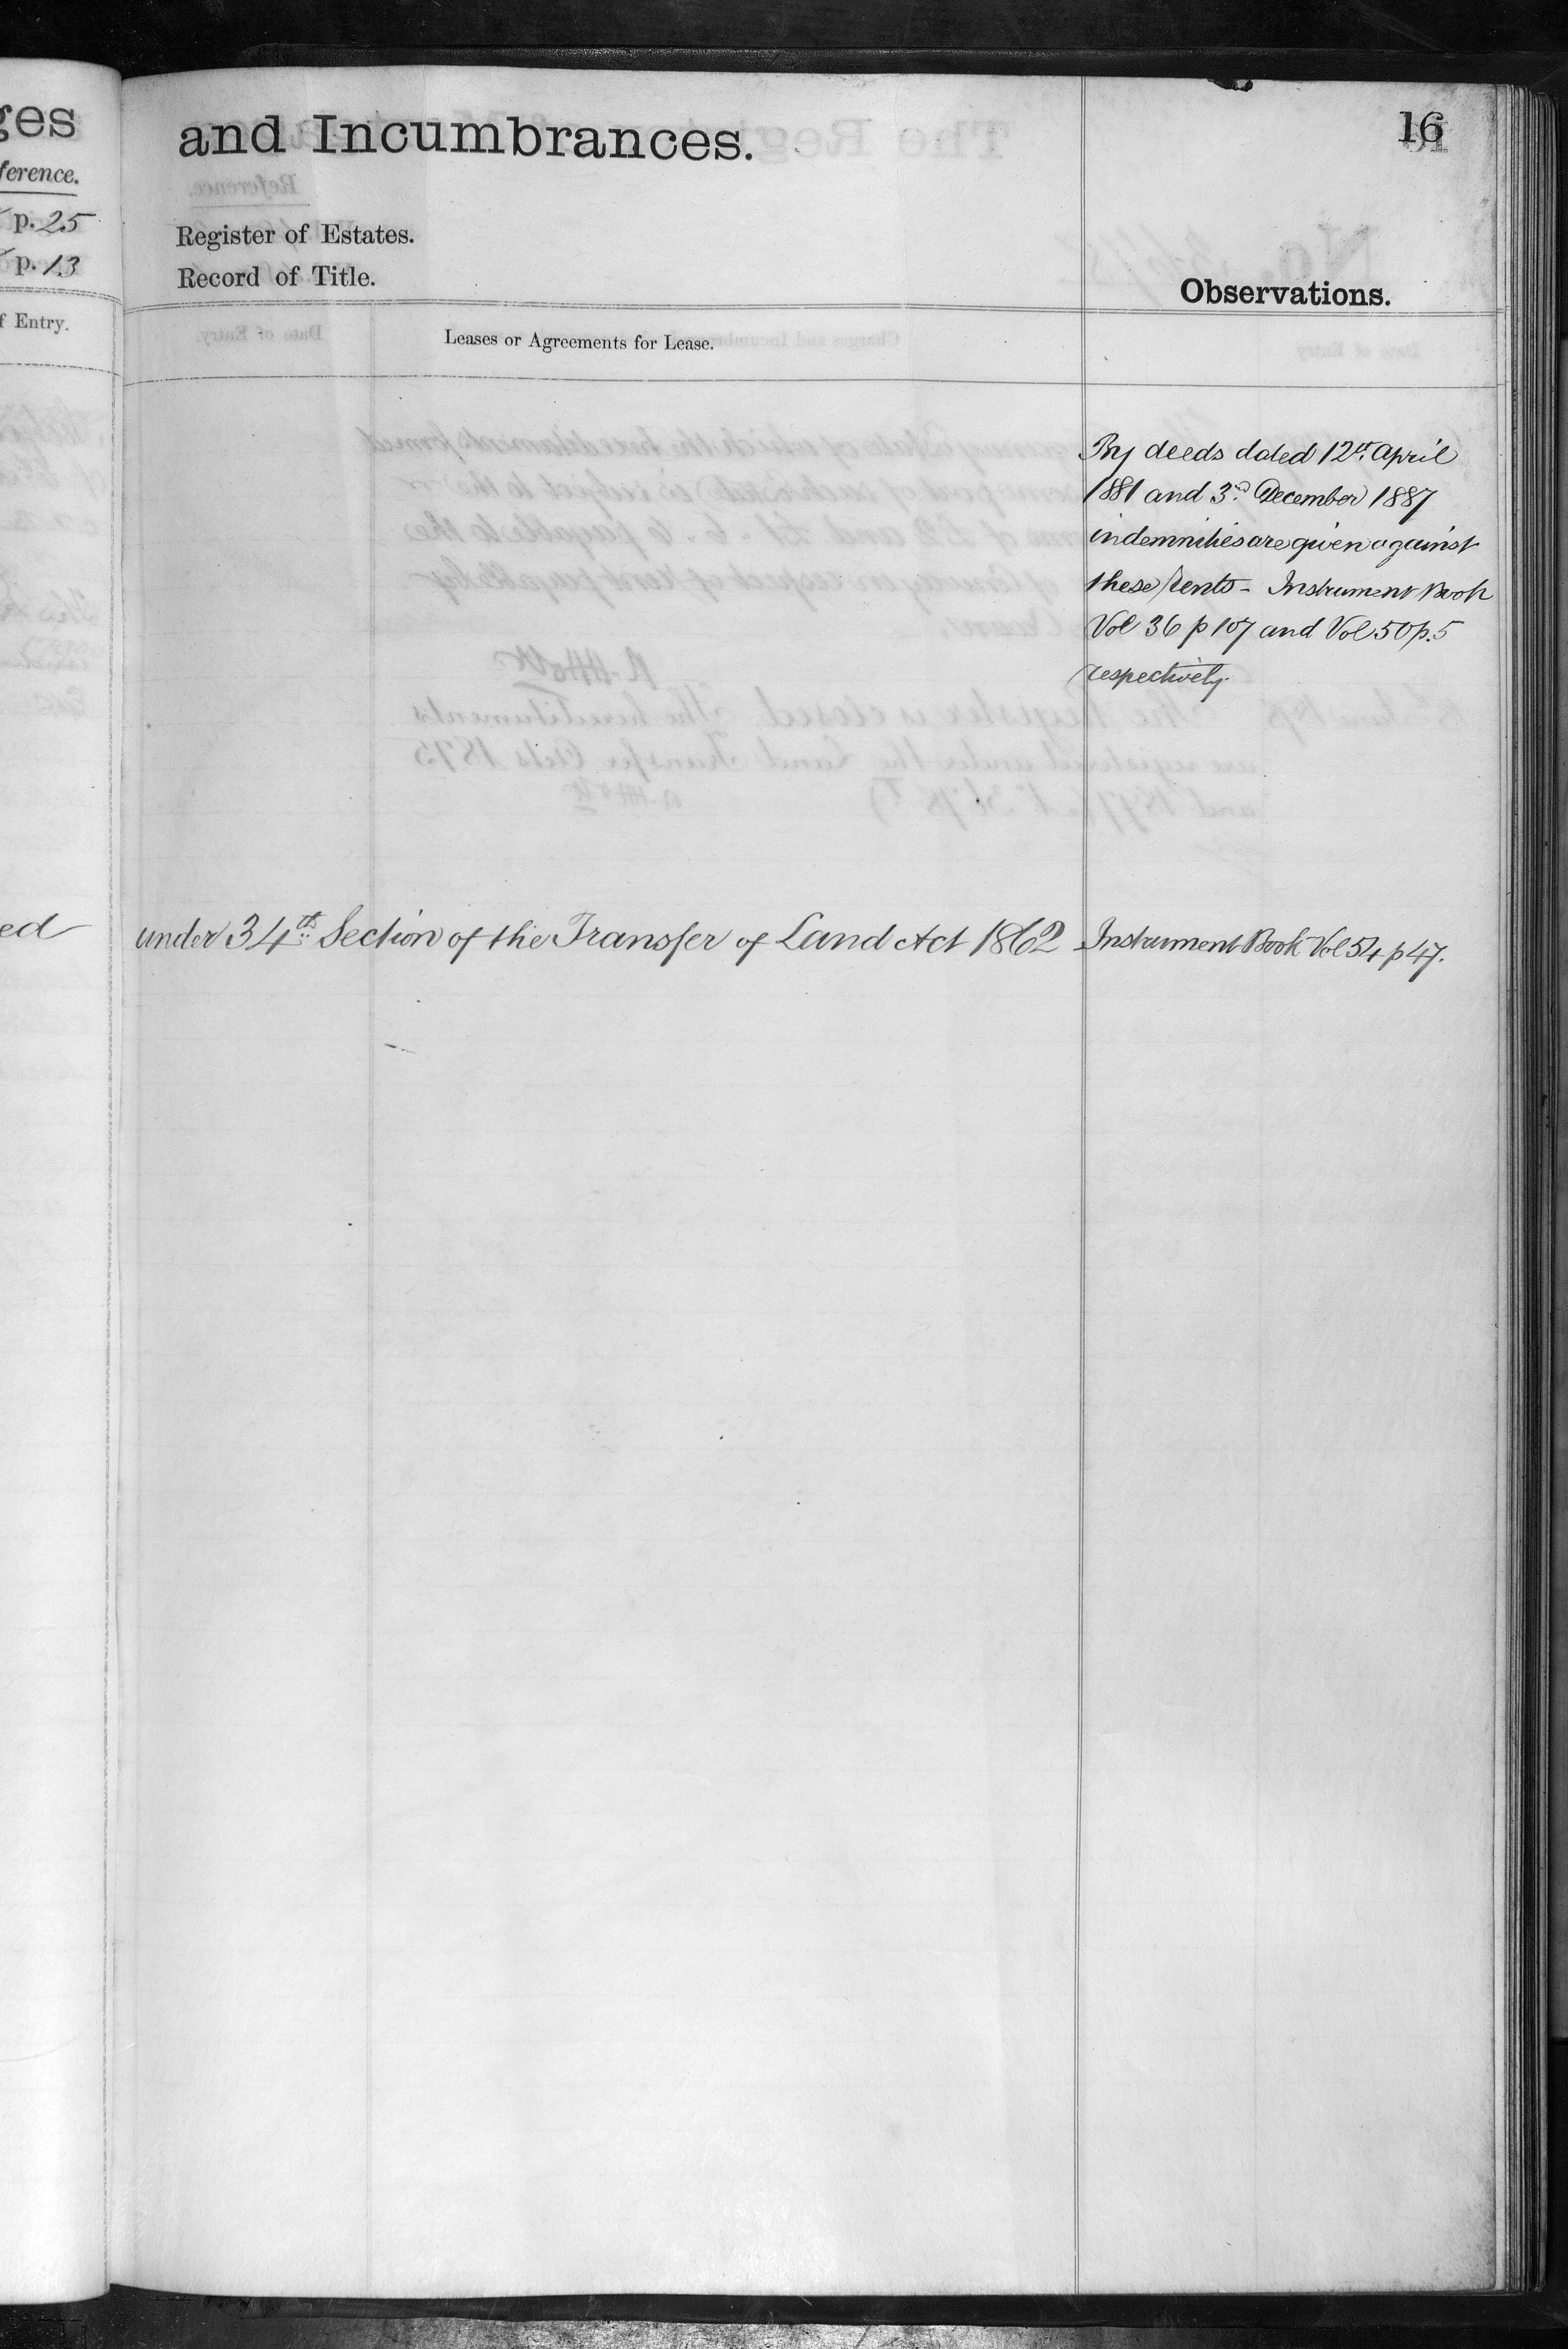 ges
ference.
p. 25
p. 13
f Entry.
ed
and Incumbrances.
16
Register of Estates.
Record of Title.
Observations.
Leases or Agreements for Lease.
By deeds dated 12th April
1881 and 3rd December 1887
indemnities are given against
these rents - Instrument Book
Vol 36 p 107 and Vol 50 p. 5
respectively.
under 34th Section of the Transfer of Land Act 1862
Instrument Book Vol 54 p 47.